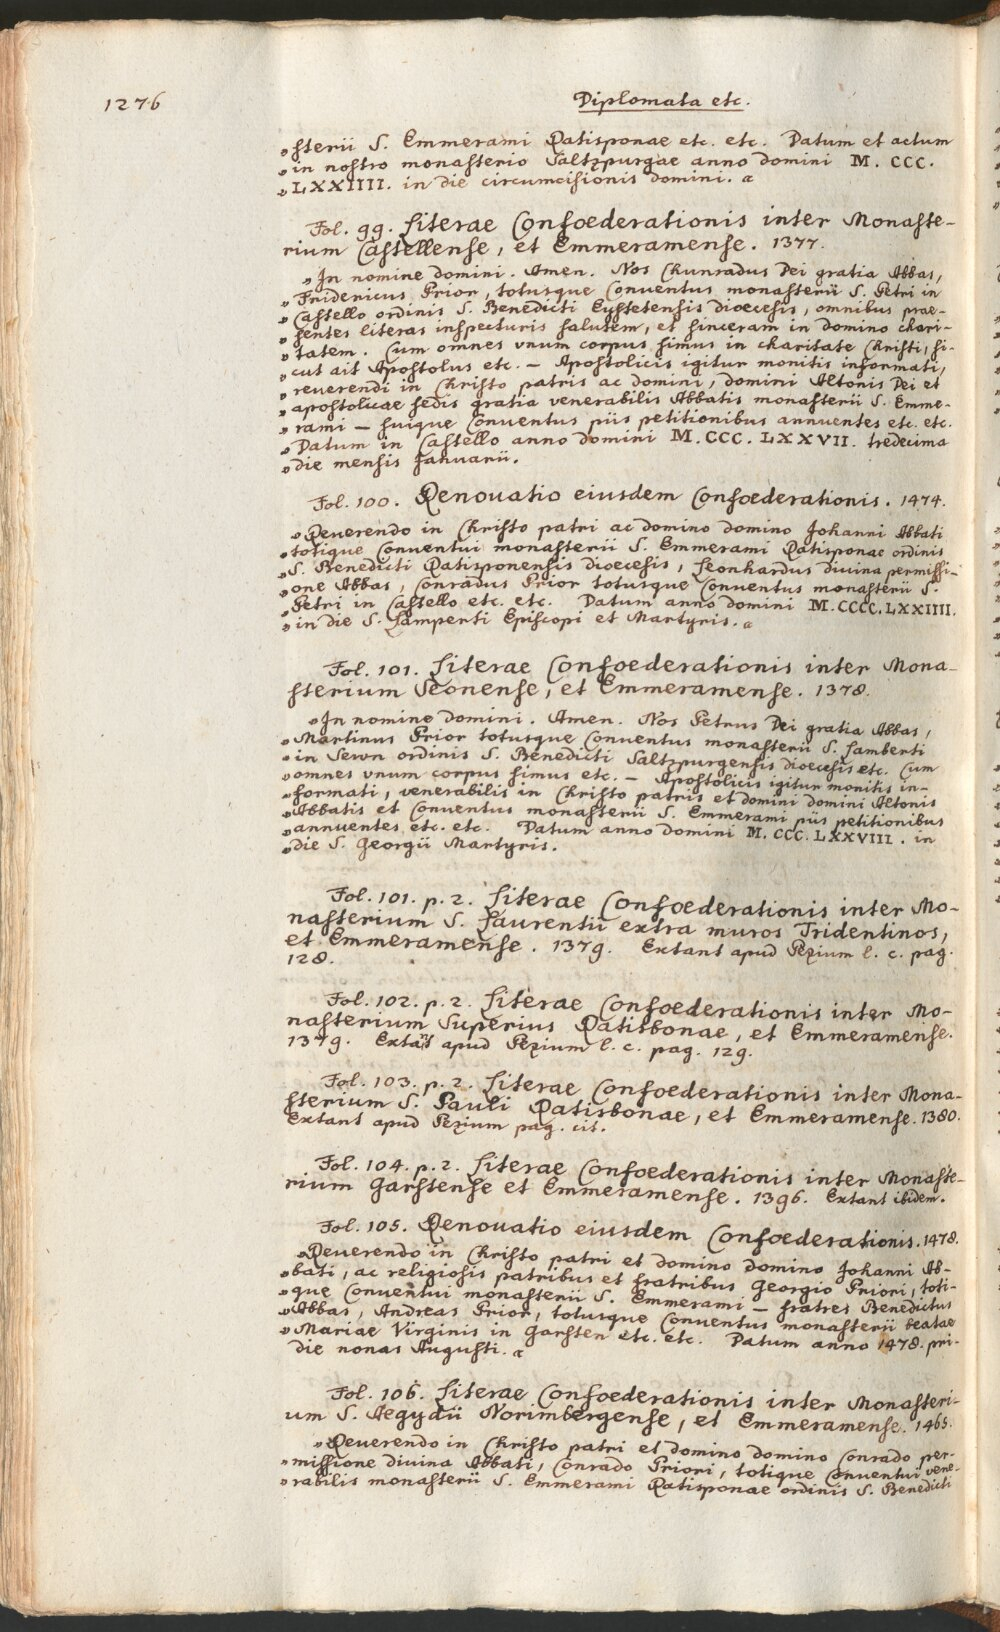 1276
Diplomata etc.
„sterii S. Emmerami Ratisponae etc. etc. Datum et actum
„in nostro monasterio Saltzpurgae anno domini M. CCC.
„LXXIIII. in die circumcisionis domini. a
Fol. 99. Literae Confoederationis inter Monaste-
rium Castellense, et Emmeramense. 1377.
„In nomine domini. Amen. Nos Chunradus Dei gratia Abbas,
„Fridericus Prior, totusque Conventus monasterii S. Petri in
„Castello ordinis S. Benedicti Eystetensis dioecesis, omnibus prae-
„sentes literas inspecturis salutem, et sinceram in domino chari-
„tatem. Cum omnes vnum corpus simus in charitate Christi, si-
„cut ait Apostolus etc. – Apostolicis igitur monitis informati,
„reuerendi in Christo patris ac domini, domini Altonis Dei et
„apostolicae sedis gratia venerabilis Abbatis monasterii S. Emme-
„rami – suique Conuentus piis petitionibus annuentes etc. etc.
„Datum in Castello anno domini M. CCC. LXXVII. tredecima
„die mensis Januarii.
Fol. 100. Renouatio eiusdem Confoederationis. 1474.
„Reuerendo in Christo patri ac domino domino Johanni Abbati
„totique Conuentui monasterii S. Emmerami Ratisponae ordinis
„S. Benedicti Ratisponensis dioecesis, Leonhardus diuina permissi-
„one Abbas, Conradus Prior totusque Conuentus monasterii S.
„Petri in Castello etc. etc. Datum anno domini M. CCCC. LXXIIII.
„in die S. Lamperti Episcopi et Martyris. a
Fol. 101. Literae Confoederationis inter Mona-
sterium Seonense, et Emmeramense. 1378.
„In nomine domini. Amen. Nos Petrus Dei gratia Abbas,
„Martinus Prior totusque Conuentus monasterii S. Lamberti
„in Sewn ordinis S. Benedicti Saltzpurgensis dioecesis etc. Cum
„omnes vnum corpus simus etc. – Apostolicis igitur monitis in-
„formati, venerabilis in Christo patris et domini domini Altonis
„Abbatis et Conuentus monasterii S. Emmerami piis petitionibus
„annuentes etc. etc. Datum anno domini M. CCC. LXXVIII. in
„die S. Georgii Martyris.
Fol. 101. p. 2. Literae Confoederationis inter Mo-
nasterium S. Laurentii extra muros Tridentinos,
et Emmeramense. 1379. Extant apud Pezium l. c. pag.
128.
Fol. 102. p. 2. Literae Confoederationis inter Mo-
nasterium Superius Ratisbonae, et Emmeramense.
1379. Extant apud Pezium l. c. pag. 129.
Fol. 103. p. 2. Literae Confoederationis inter Mona-
sterium S. Pauli Ratisbonae, et Emmeramense. 1380.
Extant apud Pezium pag. cit.
Fol. 104. p. 2. Literae Confoederationis inter Monaste-
rium Garstense et Emmeramense. 1396. Extant ibidem.
Fol. 105. Renouatio eiusdem Confoederationis. 1478.
„Reuerendo in Christo patri et domino domino Johanni Ab-
„bati, ac religiosis patribus et fratribus Georgio Priori, toti-
„que Conuentui monasterii S. Emmerami – fratres Benedictus
„Abbas, Andreas Prior, totusque Conuentus monasterii beatae
„Mariae Virginis in Garsten etc. etc. Datum anno 1478. pri-
die nonas Augusti. a
Fol. 106. Literae Confoederationis inter Monasteri-
um S. Aegydii Norimbergense, et Emmeramense. 1465.
„Reuerendo in Christo patri et domino domino Conrado per-
„missione diuina Abbati, Conrado Priori, totique Conuentui vene-
„rabilis monasterii S. Emmerami Ratisponae ordinis S. Benedicti